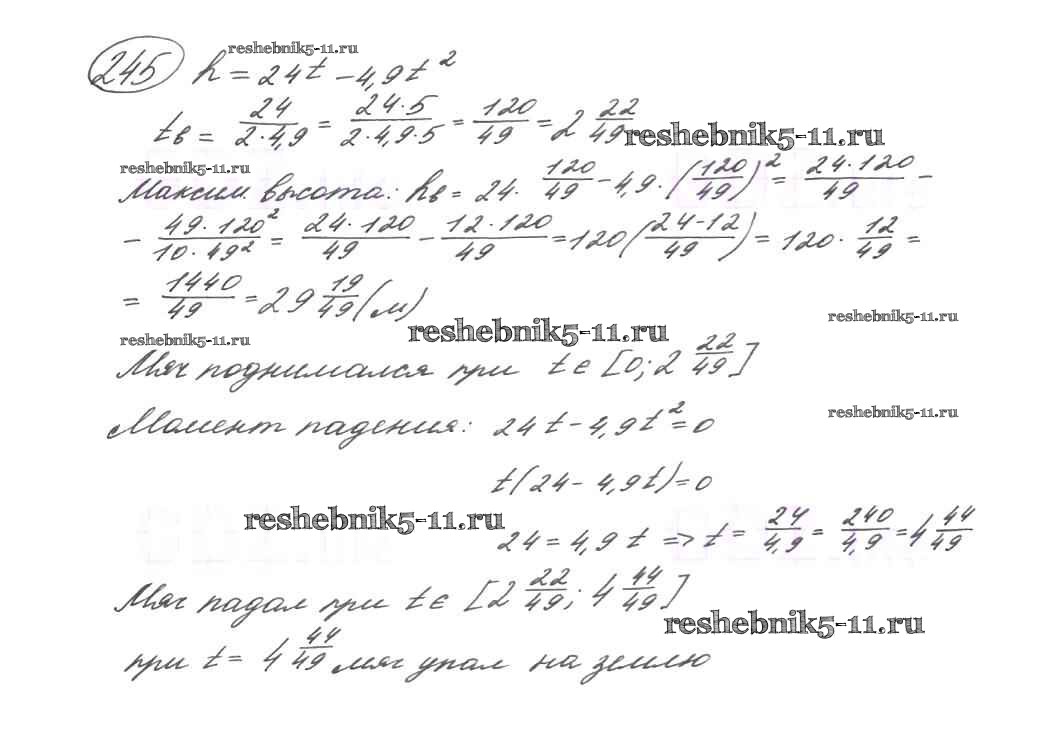 reshebnik5-11.ru
245 h = 24t - 4,9t²
tв = 24/(2·4,9) = (24·5)/(2·4,9·5) = 120/49 = 2 22/49
reshebnik5-11.ru
reshebnik5-11.ru
Максим. высота: hв = 24 · 120/49 - 4,9 · (120/49)² = (24·120)/49 -
- (49·120²)/(10·49²) = (24·120)/49 - (12·120)/49 = 120((24-12)/49) = 120 · 12/49 =
= 1440/49 = 29 19/49 (м)
reshebnik5-11.ru
reshebnik5-11.ru
reshebnik5-11.ru
Мяч поднимался при t ∈ [0; 2 22/49]
reshebnik5-11.ru
Момент падения: 24t - 4,9t² = 0
t(24 - 4,9t) = 0
reshebnik5-11.ru
24 = 4,9t => t = 24/4,9 = 240/4,9 = 4 44/49
Мяч падал при t ∈ [2 22/49; 4 44/49]
reshebnik5-11.ru
при t = 4 44/49 мяч упал на землю